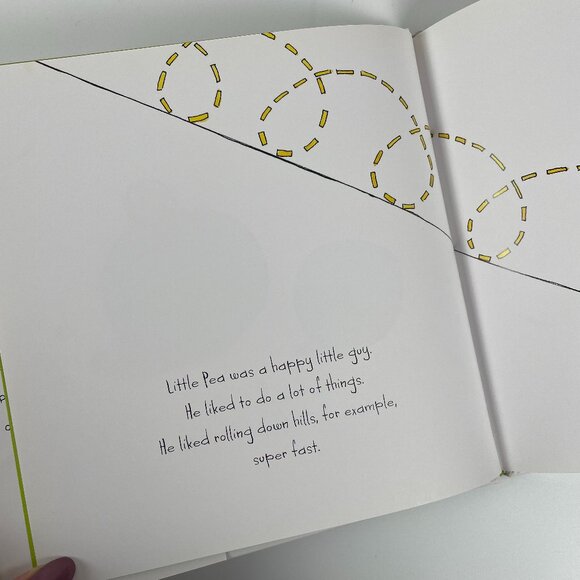 Little Pea was a happy little guy.
He liked to do a lot of things.
He liked rolling down hills, for example,
super fast.